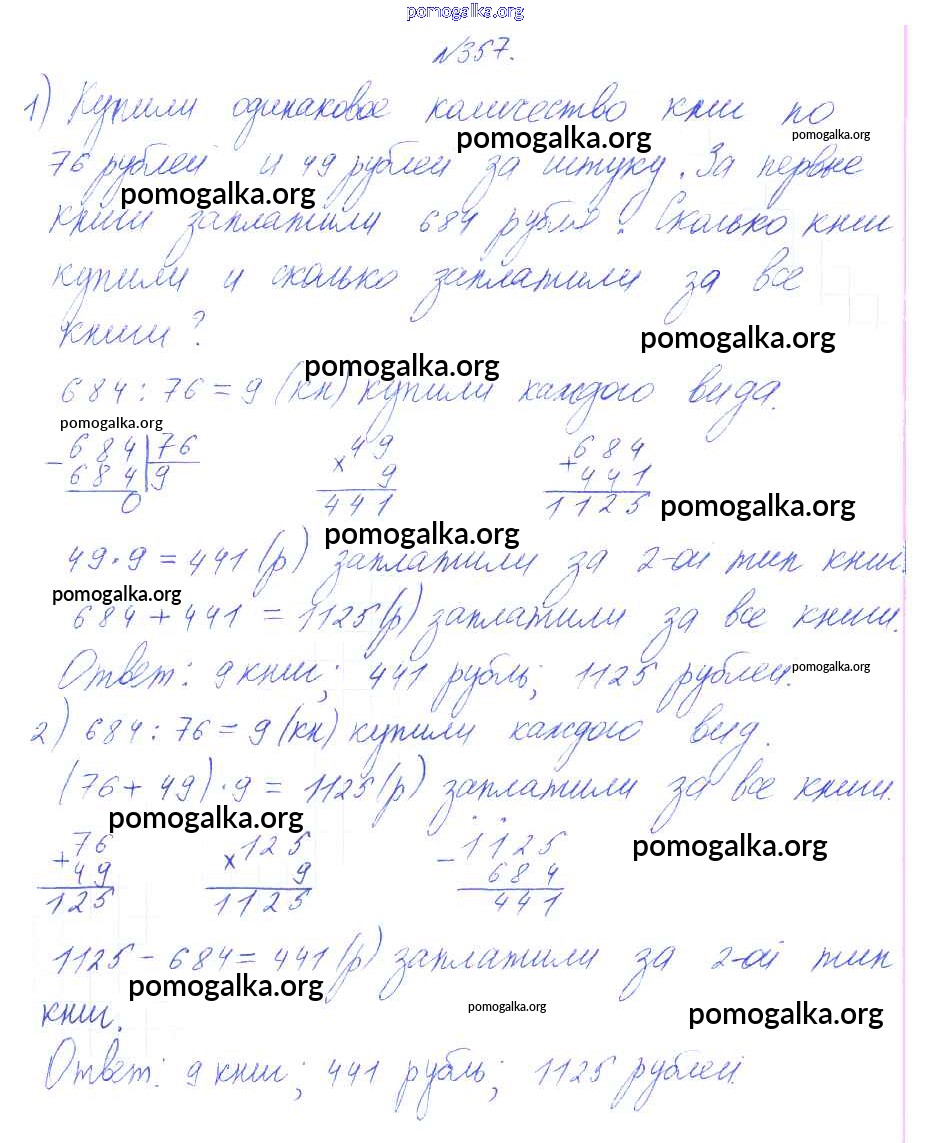 pomogalka.org
№357.
1) Купили одинаковое количество книг по
pomogalka.org pomogalka.org
76 рублей и 49 рублей за штуку. За первые
pomogalka.org
книги заплатили 684 рубля? Сколько книг
купили и сколько заплатили за все
книги?
pomogalka.org
pomogalka.org
684 : 76 = 9 (кн) купили каждого вида.
pomogalka.org
- 684 | 76 × 49 + 684
684 | 9 9 441
0 441 1125
pomogalka.org
pomogalka.org
49 · 9 = 441 (р) заплатили за 2-ой тип книг.
pomogalka.org
684 + 441 = 1125 (р) заплатили за все книги.
Ответ: 9 книг; 441 рубль; 1125 рублей.
pomogalka.org
2) 684 : 76 = 9 (кн) купили каждого вид.
(76 + 49) · 9 = 1125 (р) заплатили за все книги.
pomogalka.org
+ 76 × 125 - 1125
49 9 684
125 1125 441
pomogalka.org
1125 - 684 = 441 (р) заплатили за 2-ой тип
pomogalka.org
книг.
pomogalka.org pomogalka.org
Ответ: 9 книг; 441 рубль; 1125 рублей.